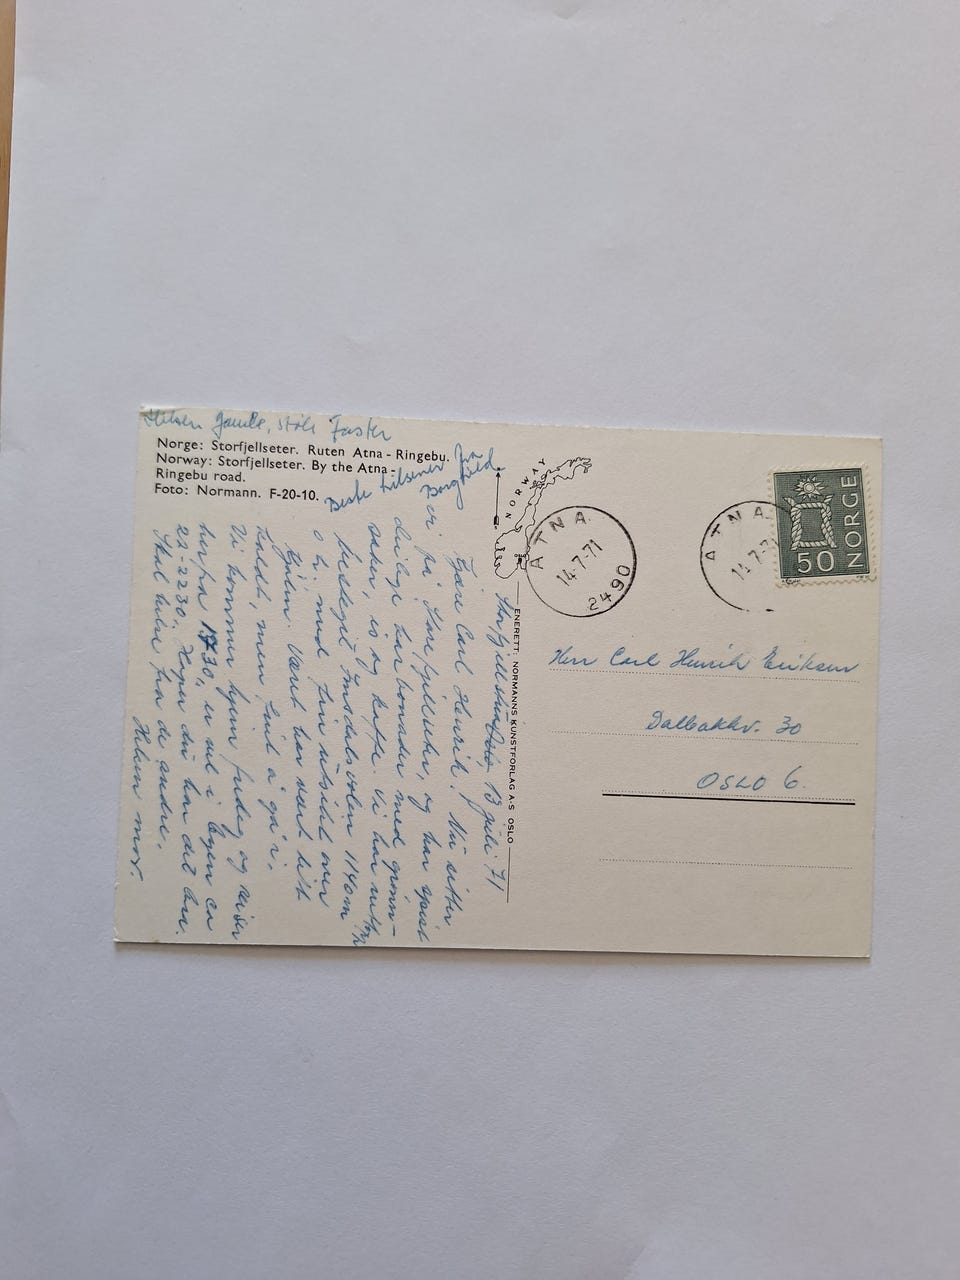 Hilsen gamle, støle Faster
Norge: Storfjellseter. Ruten Atna - Ringebu.
Norway: Storfjellseter. By the Atna -
Ringebu road.
Foto: Normann. F-20-10.
Beste hilsener fra
Borghild.
13 juli. 71
Kjære Carl Henrik. Nu sitter
vi på og har spist
deilige karbonader med grønn-
saker, is og kaffe. Vi har nettopp
besteget 1140m
o.h. med fin utsikt over
Været har vært litt
kaldt, men fint å gå i.
Vi kommer hjem fredag og reiser
herfra 1730, er vel i byen ca
22-2230. Håper du har det bra.
Skal hilse fra de andre.
Hilsen mor.
NORWAY
ENERETT: NORMANNS KUNSTFORLAG A-S OSLO
ATNA
14.7.71
2490
ATNA
14.7.71
50 NORGE
Herr Carl Henrik Eriksen
Dalbakkv. 30
OSLO 6.